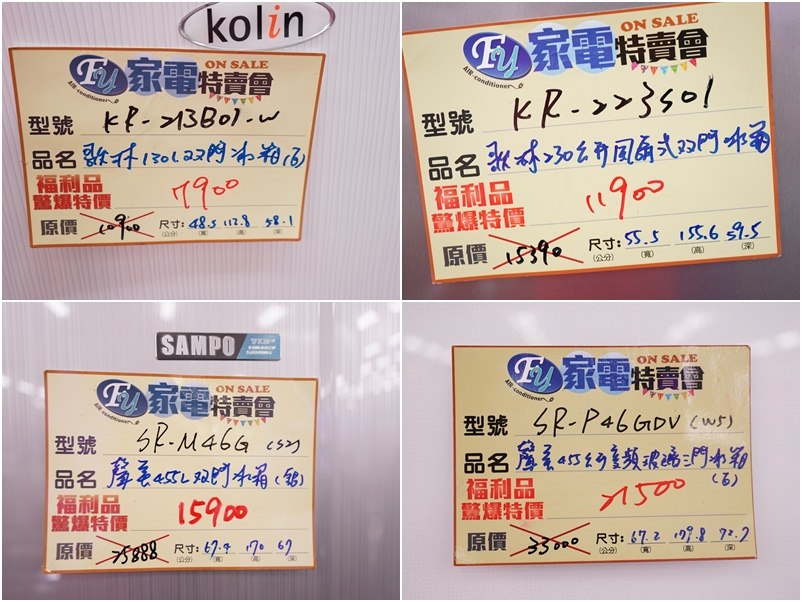 kolin
Fy 家電特賣會 ON SALE
AIR conditioner
型號 KR-213B01-W
品名 歌林130L双門冰箱(白)
福利品
驚爆特價 7900
原價 10900 尺寸: 48.5 112.8 58.1
(公分) (寬) (高) (深)
Fy 家電特賣會 ON SALE
AIR conditioner
型號 KR-223S01
品名 歌林230公升風扇式双門冰箱
福利品
驚爆特價 11900
原價 15390 尺寸: 55.5 155.6 59.5
(公分) (寬) (高) (深)
SAMPO
Fy 家電特賣會 ON SALE
AIR conditioner
型號 SR-M46G (S2)
品名 聲宝455L双門冰箱(銀)
福利品
驚爆特價 15900
原價 25888 尺寸: 67.4 170 67
(公分) (寬) (高) (深)
Fy 家電特賣會 ON SALE
AIR conditioner
型號 SR-P46GDV (W5)
品名 聲宝455公升變頻玻璃三門冰箱
(白)
福利品
驚爆特價 21500
原價 33000 尺寸: 67.2 179.8 72.7
(公分) (寬) (高) (深)